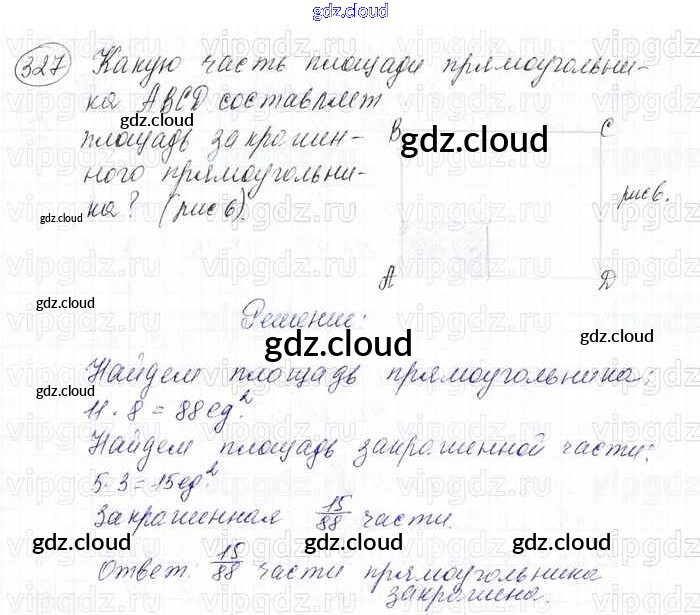 gdz.cloud
327 Какую часть площади прямоугольни-
ка ABCD составляет
площадь закрашен-
ного прямоугольни-
ка? (рис 6).
B C
gdz.cloud
рис 6.
gdz.cloud
A D
gdz.cloud
Решение:
gdz.cloud
gdz.cloud
Найдем площадь прямоугольника:
gdz.cloud
11 · 8 = 88 ед.²
Найдем площадь закрашенной части:
gdz.cloud
5 · 3 = 15 ед.²
Закрашенная 15/88 части.
gdz.cloud gdz.cloud gdz.cloud
Ответ: 15/88 части прямоугольника
закрашена.